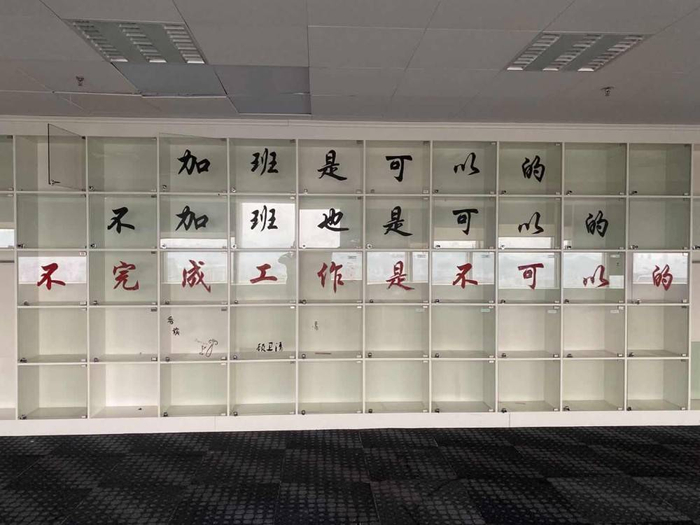 加班是可以的
不加班也是可以的
不完成工作是不可以的